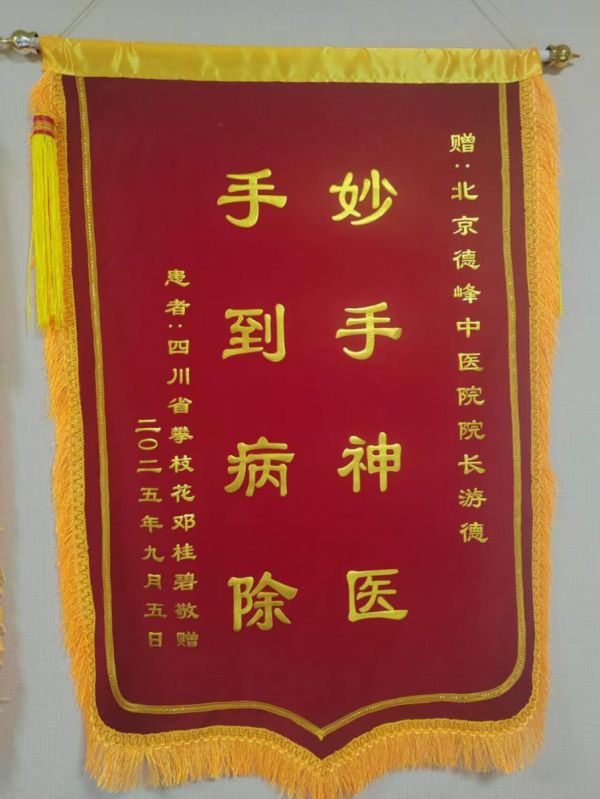 赠:北京德峰中医院院长游德
妙手神医
手到病除
患者:四川省攀枝花邓桂碧敬赠
二〇二五年九月五日